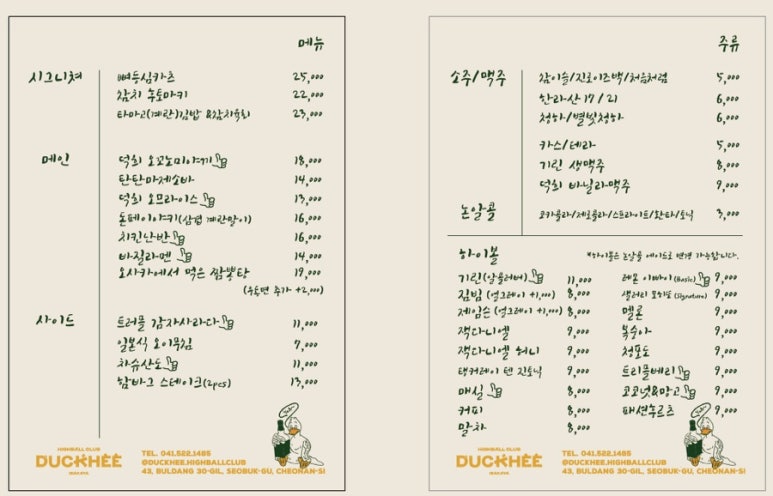 메뉴
시그니쳐
뼈등심카츠 25,000
참치 후토마키 22,000
타마고(계란)김밥 &참치육회 23,000
메인
덕희 오꼬노미야끼 18,000
탄탄마제소바 14,000
덕희 오므라이스 13,000
돈페이야키(삼겹 계란말이) 16,000
치킨난반 16,000
바질라멘 14,000
오사카에서 먹은 짬뽕탕 19,000
(우동면 추가 +2,000)
사이드
트러플 감자사라다 11,000
일본식 오이무침 7,000
차슈산도 11,000
함바그 스테이크(2pcs) 13,000
HIGHBALL CLUB
DUCKHĒE
IZAKAYA
TEL. 041.522.1485
@DUCKHEE.HIGHBALLCLUB
43, BULDANG 30-GIL, SEOBUK-GU, CHEONAN-SI
주류
소주/맥주
참이슬/진로이즈백/처음처럼 5,000
한라산 17 / 21 6,000
청하/별빛청하 6,000
카스/테라 5,000
기린 생맥주 8,000
덕희 바닐라맥주 9,000
논알콜
코카콜라/제로콜라/스프라이트/환타/토닉 3,000
하이볼
*하이볼은 논알콜 에이드로 변경 가능합니다.
기린(얼그레이) 11,000
짐빔 (얼그레이 +1,000) 8,000
제임슨 (얼그레이 +1,000) 8,000
잭다니엘 9,000
잭다니엘 허니 9,000
탱커레이 텐 진토닉 9,000
매실 8,000
커피 8,000
말차 8,000
레몬 (Basic) 9,000
(Signature) 9,000
멜론 9,000
복숭아 9,000
청포도 9,000
트리플베리 9,000
코코넛&망고 9,000
패션후르츠 9,000
HIGHBALL CLUB
DUCKHĒE
IZAKAYA
TEL. 041.522.1485
@DUCKHEE.HIGHBALLCLUB
43, BULDANG 30-GIL, SEOBUK-GU, CHEONAN-SI